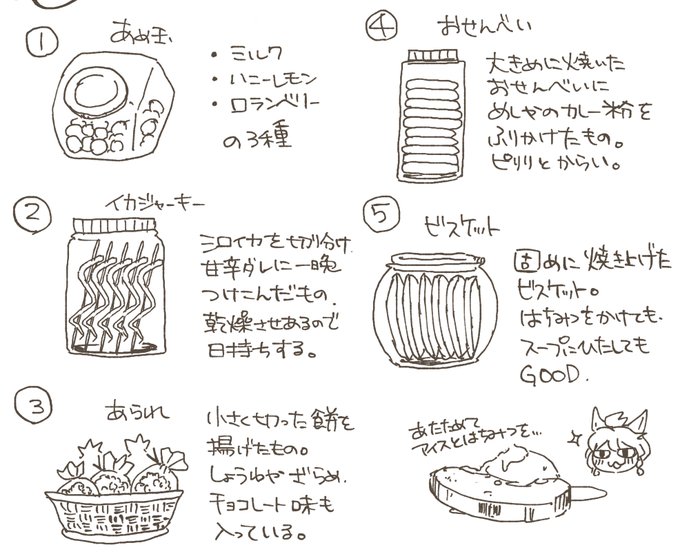 ① あめ玉
・ミルク
・ハニーレモン
・ロランベリー
の3種
② イカジャーキー
シロイカを切り分け
甘辛ダレに一晩
つけこんだもの。
乾燥させあるので
日持ちする。
③ あられ
小さく切った餅を
揚げたもの。
しょうゆやざらめ、
チョコレート味も
入っている。
④ おせんべい
大きめに焼いた
おせんべいに
めしやのカレー粉を
ふりかけたもの。
ピリリとからい。
⑤ ビスケット
固めに焼き上げた
ビスケット。
はちみつをかけても、
スープにひたしても
GOOD.
あたためて
アイスとはちみつを…